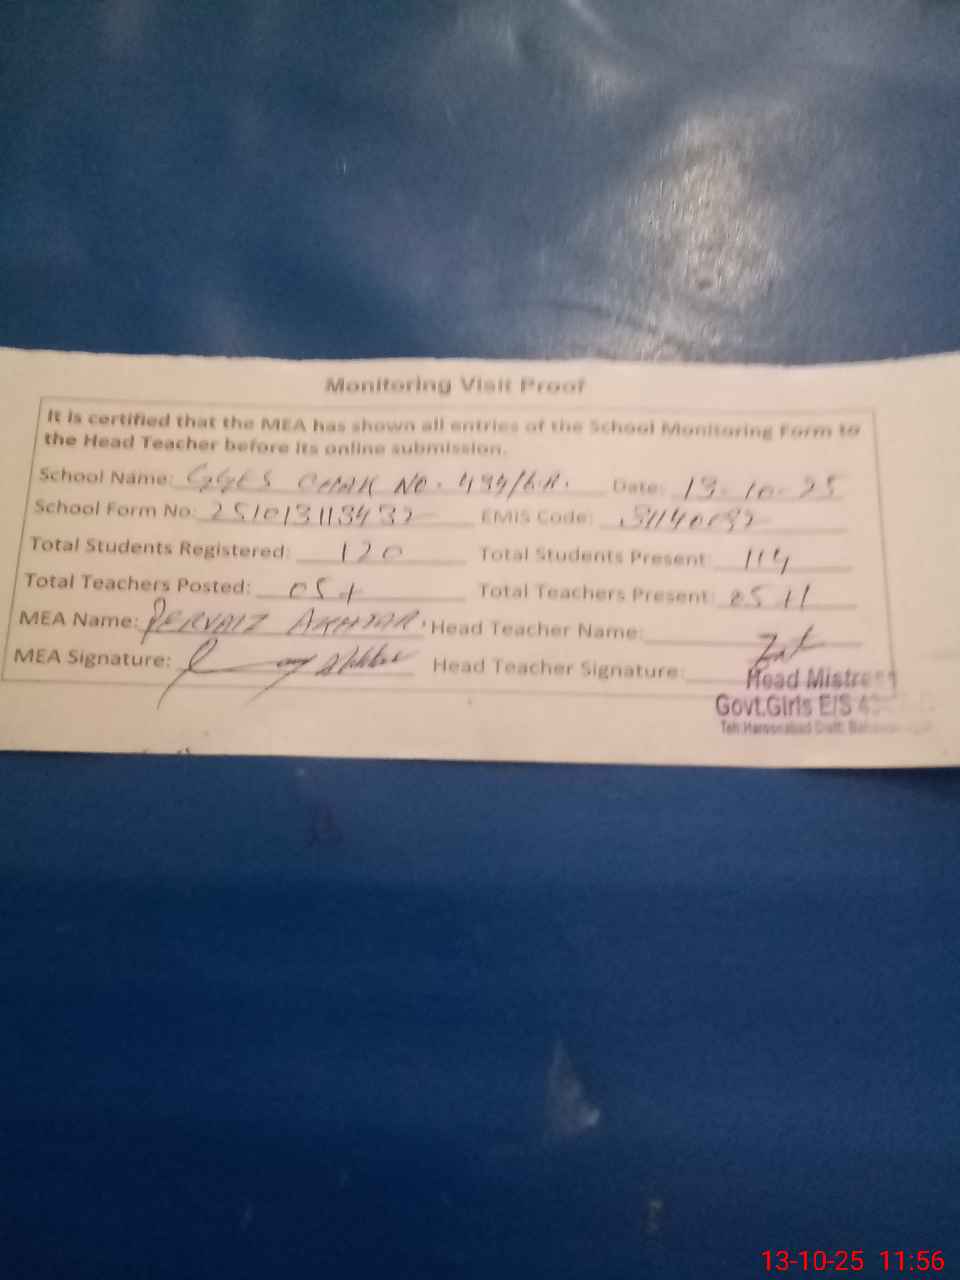 Monitoring Visit Proof
It is certified that the MEA has shown all entries of the School Monitoring Form to
the Head Teacher before its online submission.
School Name: GGES Chak No. Date: 13-10-25
School Form No: EMIS Code:
Total Students Registered: 120 Total Students Present: 114
Total Teachers Posted: Total Teachers Present:
MEA Name: PERVAIZ AKHTAR. Head Teacher Name:
MEA Signature: Head Teacher Signature:
Head Mistress
Govt.Girls E/S
Teh:Haroonabad Distt:
13-10-25 11:56